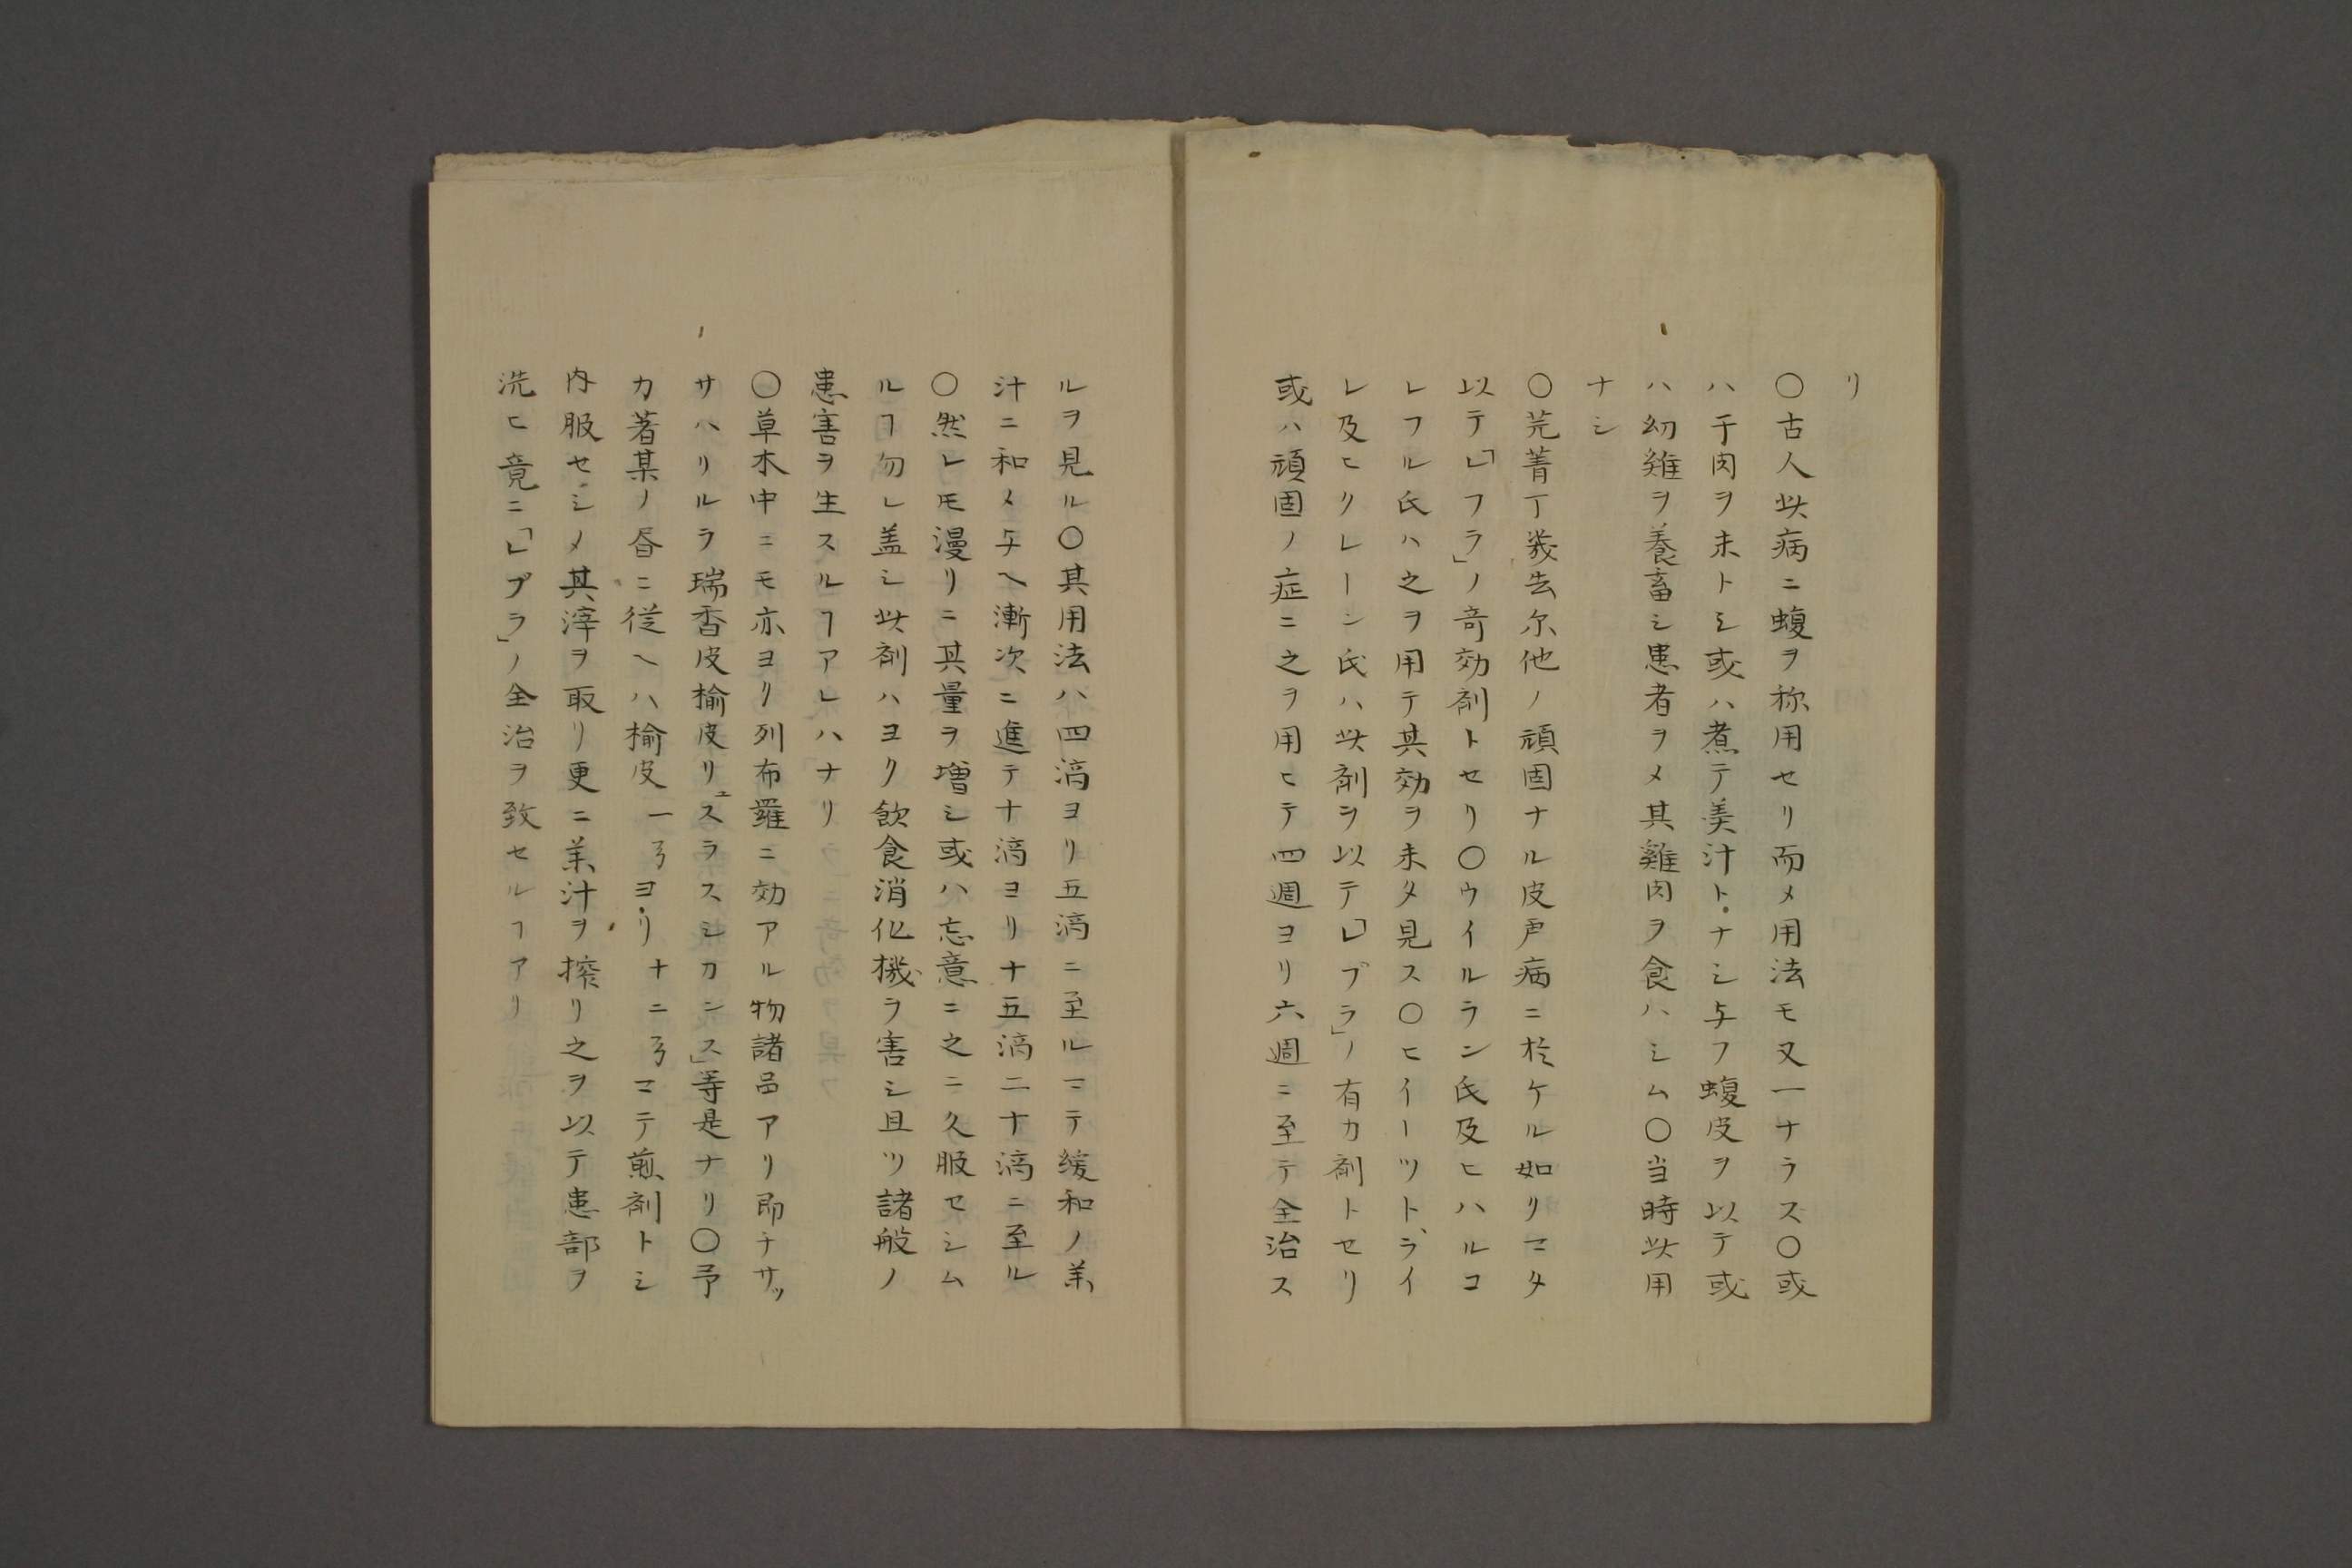 リ
〇古人此病ニ蝮ヲ称用セリ而メ用法モ又一ナラス〇或
ハ干肉ヲ末トシ或ハ煮テ羹汁トナシ与フ蝮皮ヲ以テ或
ハ幼雞ヲ養畜シ患者ヲメ其雞肉ヲ食ハシム〇当時此用
ナシ
〇芫菁丁幾去尓他ノ頑固ナル皮戸病ニ於ケル如リマタ
以テ「レフラ」ノ奇効剤トセリ〇ウイルラン氏及ヒハルコ
レフル氏ハ之ヲ用テ其効ヲ未タ見ス〇ヒイーツトライ
レ及ヒクレーン氏ハ此剤ヲ以テ「レブラ」ノ有力剤トセリ
或ハ頑固ノ症ニ之ヲ用ヒテ四週ヨリ六週ニ至テ全治ス
ルヲ見ル〇其用法ハ四滴ヨリ五滴ニ至ルマテ緩和ノ羹
汁ニ和メ与ヘ漸次ニ進テ十滴ヨリ十五滴二十滴ニ至ル
〇然レ𪜈漫リニ其量ヲ増シ或ハ忘意ニ之ニ久服セシム
ルヿ勿レ盖シ此剤ハヨク飲食消化機ヲ害シ且ツ諸般ノ
患害ヲ生スルヿアレハナリ
〇草木中ニモ亦ヨリ列布羅ニ効アル物諸品アリ即チサッ
サハリルラ瑞香皮楡皮リュスラスシカンス」等是ナリ〇予
カ著某ノ昏ニ従ヘハ楡皮一ヲヨリ十二ヲマテ煎剤トシ
内服セシメ其滓ヲ取リ更ニ羹汁ヲ搾リ之ヲ以テ患部ヲ
洗ヒ竟ニ「レブラ」ノ全治ヲ致セルヿアリ